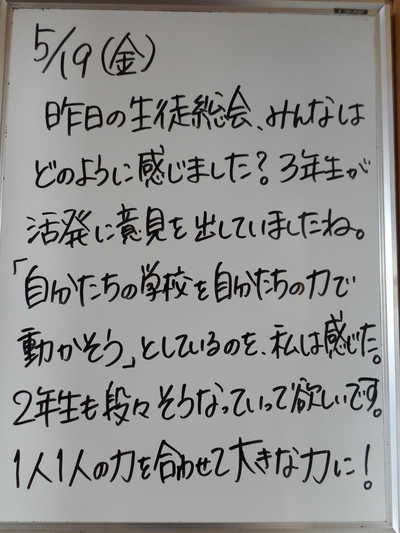 5/19(金)
昨日の生徒総会、みんなは
どのように感じました？3年生が
活発に意見を出していましたね。
「自分たちの学校を自分たちの力で
動かそう」としているのを、私は感じた。
2年生も段々そうなっていって欲しいです。
1人1人の力を合わせて大きな力に！